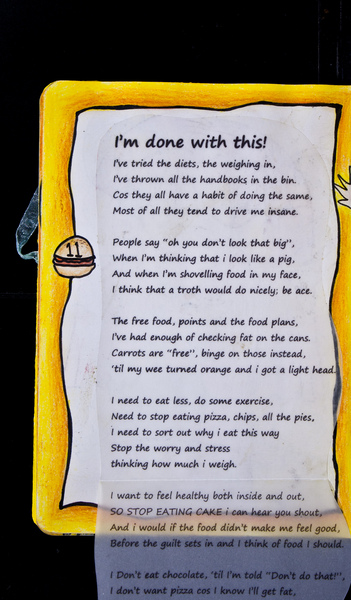 I'm done with this!
I've tried the diets, the weighing in,
I've thrown all the handbooks in the bin.
Cos they all have a habit of doing the same,
Most of all they tend to drive me insane.
People say "oh you don't look that big",
When I'm thinking that i look like a pig,
And when I'm shovelling food in my face,
I think that a troth would do nicely; be ace.
11
The free food, points and the food plans,
I've had enough of checking fat on the cans.
Carrots are "free", binge on those instead,
'til my wee turned orange and i got a light head.
I need to eat less, do some exercise,
Need to stop eating pizza, chips, all the pies.
I need to sort out why i eat this way
Stop the worry and stress
thinking how much i weigh.
I want to feel healthy both inside and out,
SO STOP EATING CAKE i can hear you shout,
And i would if the food didn't make me feel good,
Before the guilt sets in and I think of food I should.
I Don't eat chocolate, 'til I'm told "Don't do that!",
I don't want pizza cos I know I'll get fat,